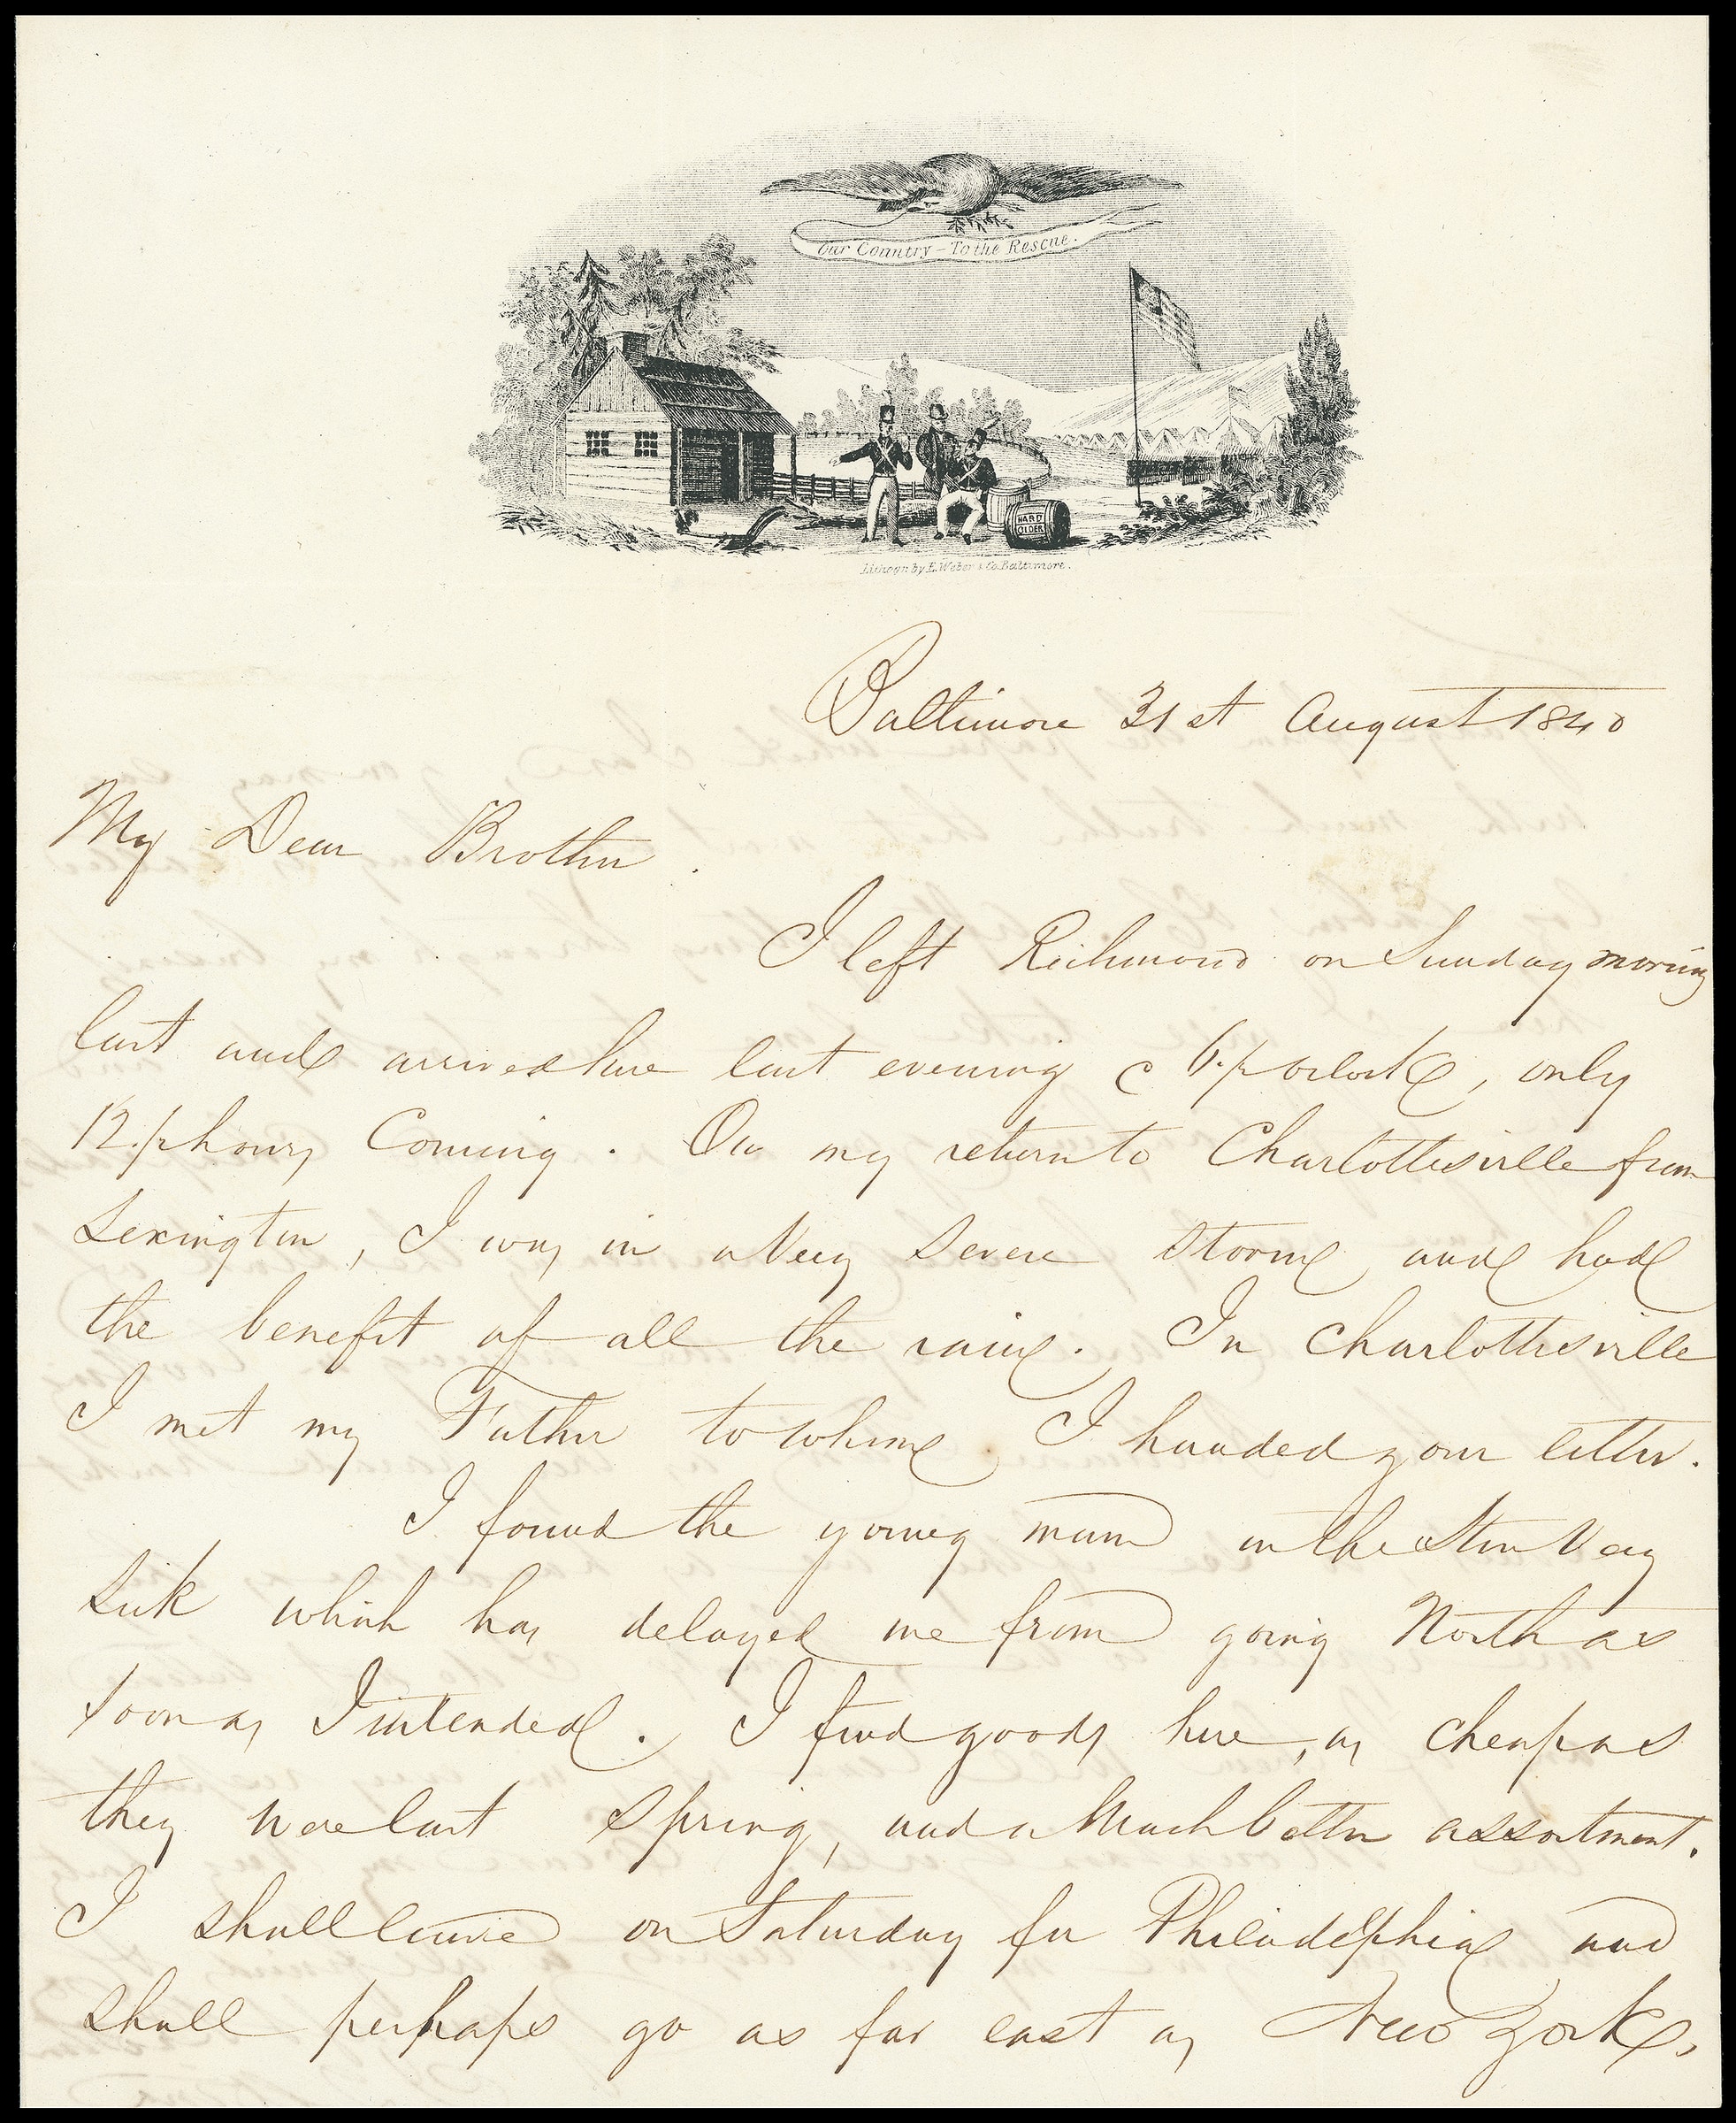 Our Country – To the Rescue.
HARD
CIDER
Lithogr. by E. Weber & Co. Baltimore.
Baltimore 31st August 1840
My Dear Brother.
I left Richmond on Sunday morning
last and arrived here last evening oclock, only
12 hours Coming. On my return to Charlottesville from
Lexington, I was in a Very Severe Storm and had
the benefit of all the rain. In Charlottesville
I met my Father to whom I handed your letter.
I found the young man in the Store Very
Sick which has delayed me from going North as
soon as I intended. I find goods here, as cheap as
they were last Spring, and a Much better assortment.
I shall leave on Saturday for Philadelphia and
shall perhaps go as far east as New York,